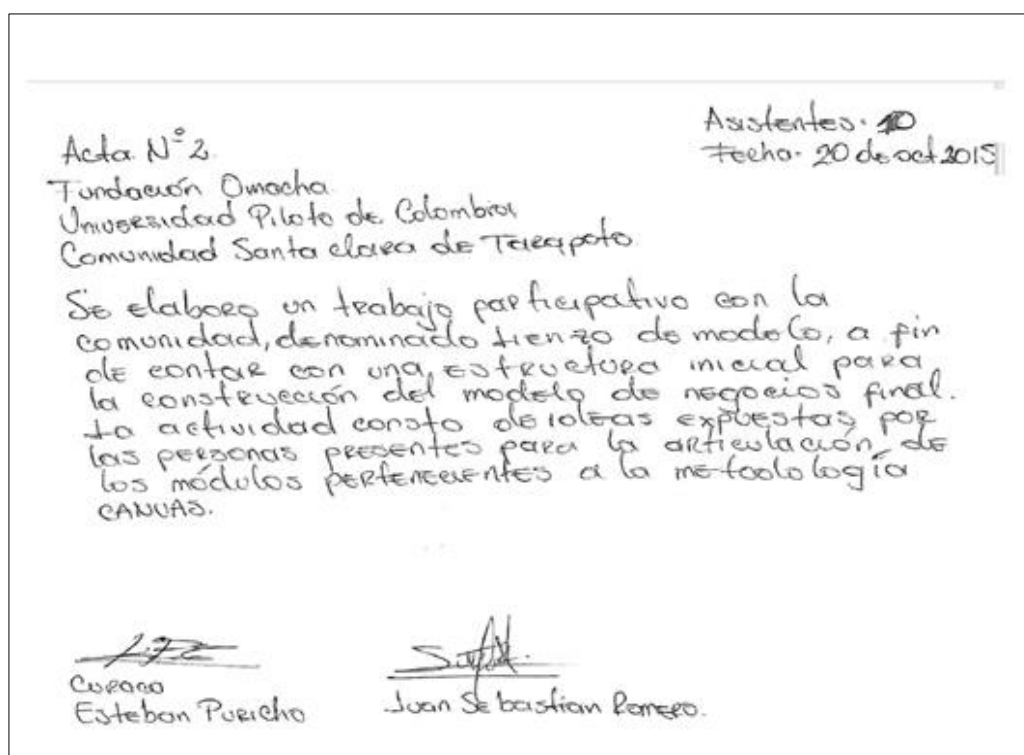 Asistentes. 10
Fecha. 20 de oct 2015
Acta N° 2.
Fundación Omacha
Universidad Piloto de Colombia
Comunidad Santa clara de Tarapoto
Se elaboro un trabajo participativo con la
comunidad, denominado lienzo de modelo, a fin
de contar con una estructura inicial para
la construcción del modelo de negocios final.
La actividad consto de ideas expuestas por
las personas presentes para la articulación de
los módulos pertenecientes a la metodología
CANVAS.
Curaca
Esteban Puricho
Juan Sebastian Romero.